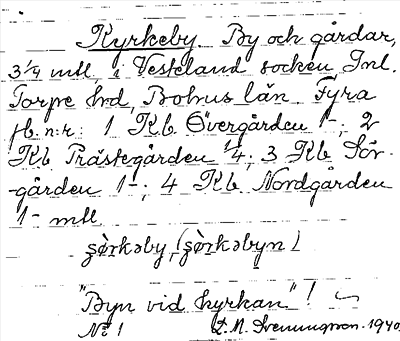 Kyrkeby. By och gårdar,
3 1/4 mtl, i Vesteland socken, Inl.
Torpe hrd, Bohus län. Fyra
jb. n:r: 1 Kb Övergården 1-; 2
Kb Prästegården 1/4; 3 Kb Sör-
-gården 1-; 4 Kb Nordgården
1- mtl.
(
"Byn vid kyrkan"!
No 1 D. N. Svenungsson. 1940